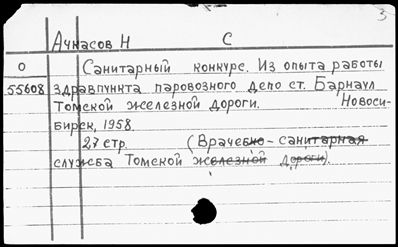 3
Ачкасов Н С
О Санитарный конкурс. Из опыта работы
55608 здравпункта паровозного депо ст. Барнаул
Томской железной дороги. Новоси-
бирск, 1958.
27 стр. (Врачебно-санитарная
служба Томской железной дороги).